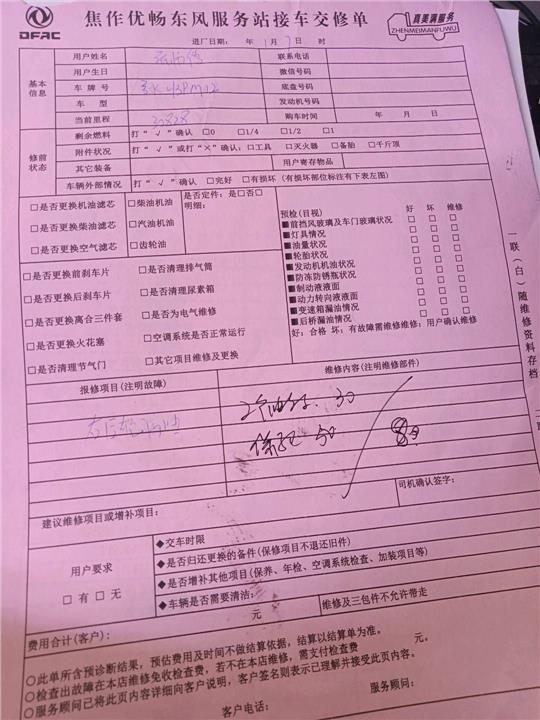 DFAC
焦作优畅东风服务站接车交修单
真美满服务
ZHENMEIMANFUWU
进厂日期: 年 1月 7日 时
基本信息
用户姓名 联系电话
用户生日 微信号码
车牌号 底盘号码
车型 发动机号码
当前里程 32828 购车时间 年 月 日
修前状态
剩余燃料 打“√”确认 □0 □1/4 □1/2 □1
附件状况 打“√”或打“×”确认:□工具 □灭火器 □备胎 □千斤顶
其它装备 用户寄存物品
车辆外部情况 打“√”确认 □完好 □有损坏(有损坏部位标注有下表左图)
□是否更换机油滤芯 □柴油机油 是否定件:是□否□
明细:
□是否更换柴油滤芯 □汽油机油
□是否更换空气滤芯 □齿轮油
□是否更换前刹车片 □是否清理排气筒
□是否更换后刹车片 □是否清理尿素箱
□是否更换离合三件套 □是否为电气维修
□是否更换火花塞 □空调系统是否正常运行
□是否清理节气门 □其它项目维修及更换
预检(目视) 好 坏 维修
■前挡风玻璃及车门玻璃状况 □ □ □
■灯具情况 □ □ □
■油量状况 □ □ □
■轮胎状况 □ □ □
■发动机机油状况 □ □ □
■防冻防锈瓶状况 □ □ □
■制动液液面 □ □ □
■动力转向液液面 □ □ □
■变速箱漏油情况 □ □ □
■后桥漏油情况 □ □ □
好:合格 坏:有故障需维修维修:用户确认维修
报修项目(注明故障) 维修内容(注明维修部件)
30
50
80
建议维修项目或增补项目: 司机确认签字:
用户要求
□有 □无
◆交车时限
◆是否归还更换的备件(保修项目不退还旧件)
◆是否增补其他项目(保养、年检、空调系统检查、加装项目等)
◆车辆是否需要清洁:
费用合计(客户): 元 维修及三包件不允许带走
○此单所含预诊断结果,预估费用及时间不做结算依据,结算以结算单为准。
○检查出故障在本店维修免收检查费,若不在本店维修,需支付检查费 元。
○服务顾问已将此页内容详细向客户说明,客户签名则表示已理解并接受此页内容。
客户电话: 服务顾问:
一联(白)随维修资料存档